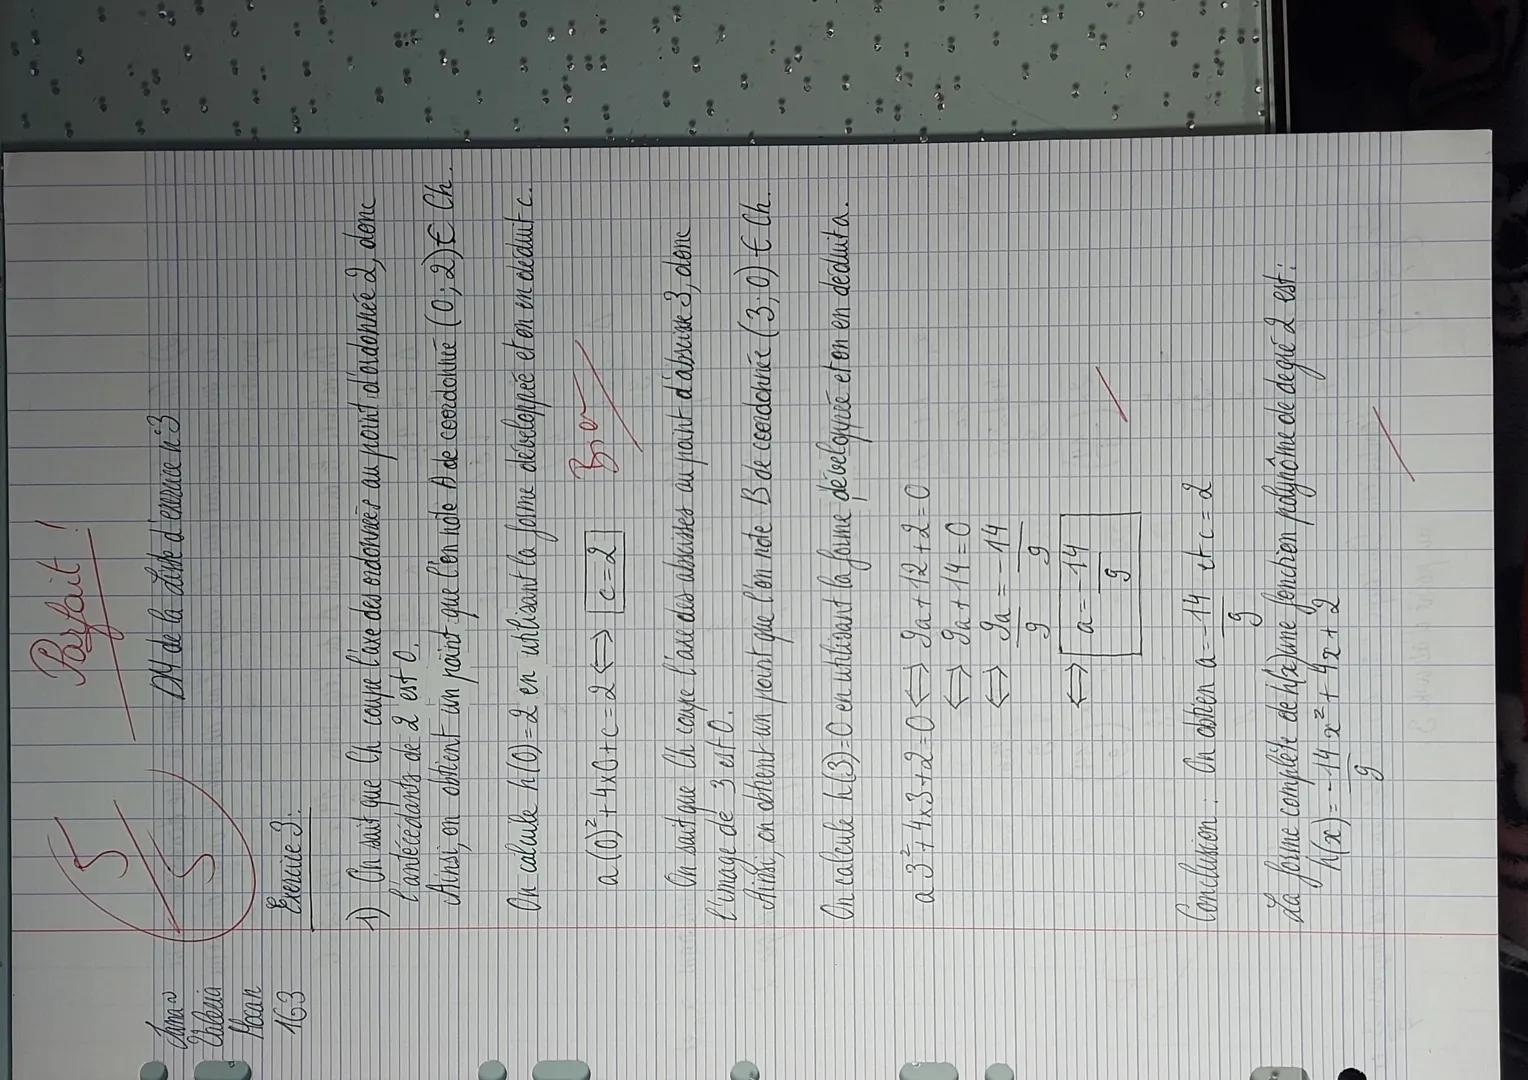 Parfait !
5
5
Ioana
Valeria
Mocan
163
DM de la liste d'exercice n°3
Exercice 3:
1) On sait que Ch coupe l'axe des ordonnées au point d'ordonnée 2, donc
l'antécédants de 2 est 0.
Ainsi, on obtient un point que l'on note A de coordonnée (0 ; 2) € Ch.
On calcule h(0) = 2 en utilisant la forme développée et on en déduit c.
a(0)² + 4×0 + c = 2 <=> c = 2
Bien
On sait que Ch coupe l'axe des abscisses au point d'abscisse 3, donc
l'image de 3 est 0.
Ainsi, on obtient un point que l'on note B de coordonnée (3 ; 0) € Ch.
On calcule h(3) = 0 en utilisant la forme développée et on en déduit a.
a3² + 4×3 + 2 = 0 <=> 9a + 12 + 2 = 0
<=> 9a + 14 = 0
<=> 9a/9 = -14/9
<=> a = -14/9
Conclusion : On obtien a = -14/9 et c = 2
La forme complète de h(x) une fonction polynôme de degré 2 est :
h(x) = -14/9 x² + 4x + 2